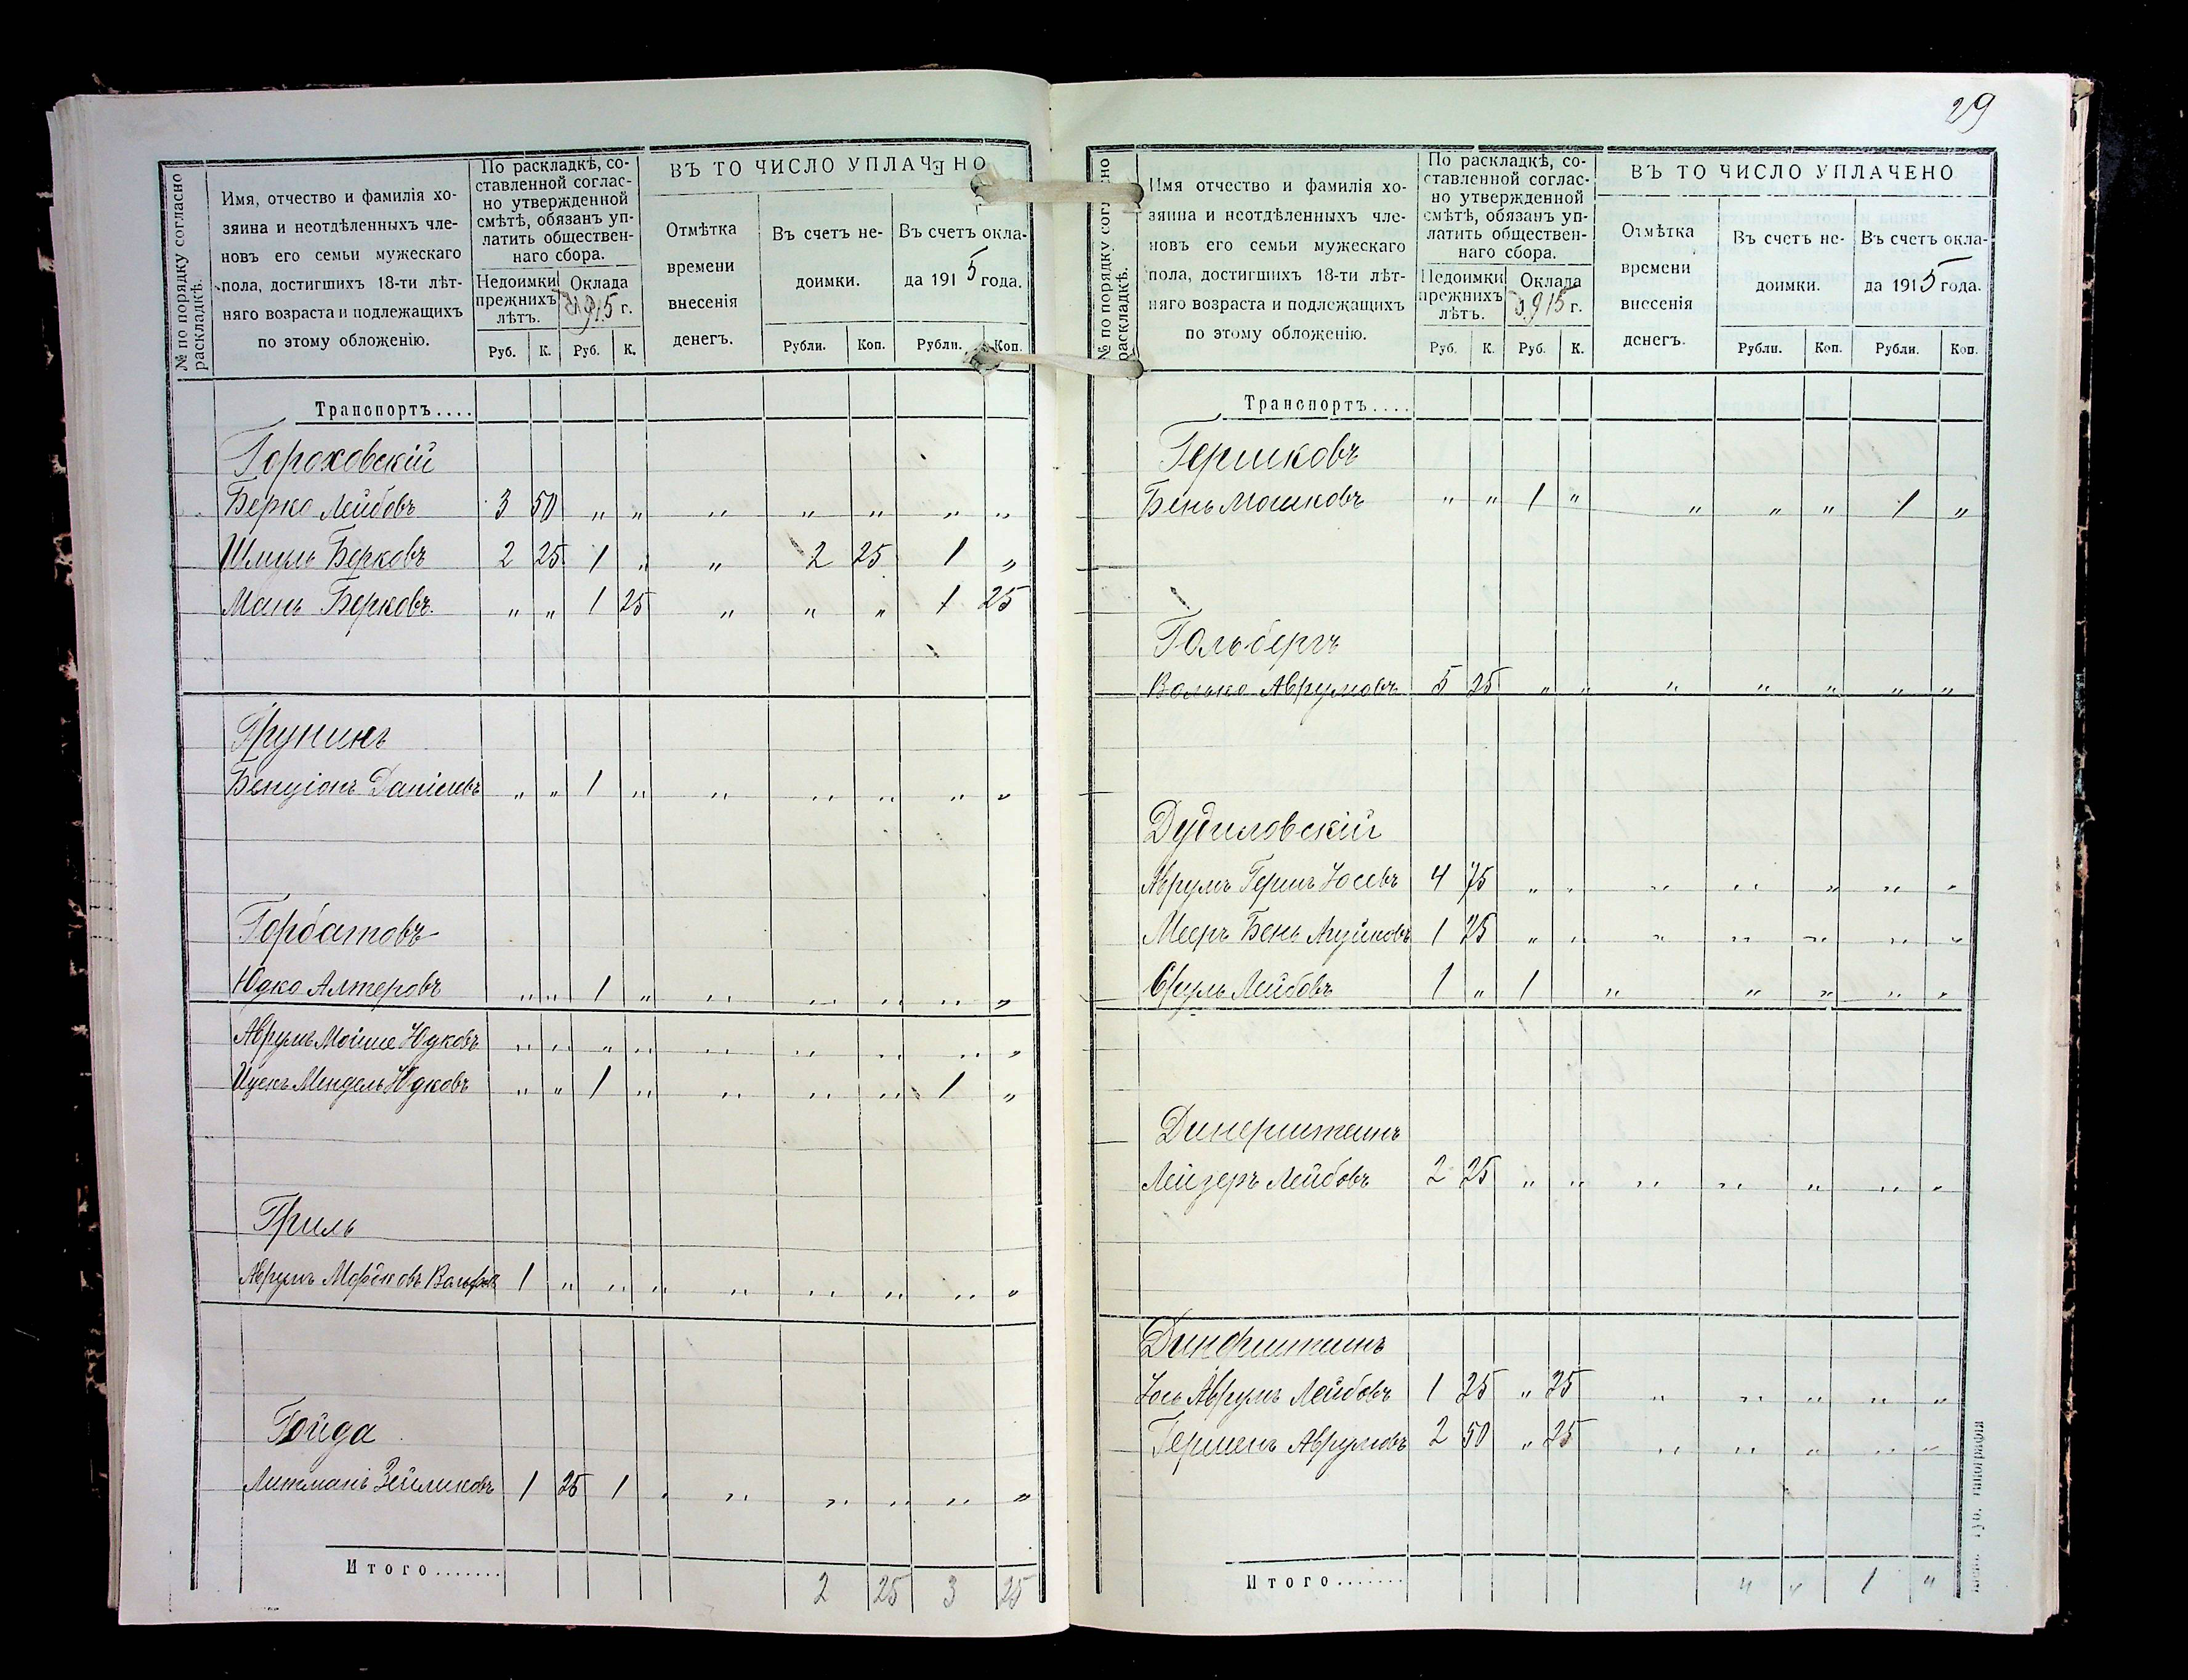 № по порядку согласно раскладкѣ.
Имя, отчество и фамилія хозяина и неотдѣленныхъ членовъ его семьи мужескаго пола, достигшихъ 18-ти лѣтняго возраста и подлежащихъ по этому обложенію.
По раскладкѣ, составленной согласно утвержденной смѣтѣ, обязанъ уплатить общественнаго сбора.
Недоимки прежнихъ лѣтъ.
Оклада 1915 г.
Руб. К. Руб. К.
ВЪ ТО ЧИСЛО УПЛАЧЕНО
Отмѣтка времени внесенія денегъ.
Въ счетъ недоимки.
Въ счетъ оклада 1915 года.
Рубли. Коп. Рубли. Коп.
Транспортъ....
Гороховскій
Берко Лейбовъ 3 50 „ „ „ „ „ „ „
Шмуль Берковъ 2 25 1 „ „ 2 25 1 „
Манъ Берковъ „ „ 1 25 „ „ „ 1 25
Грунинъ
Бенціонъ Даніелевъ „ „ 1 „ „ „ „ „ „
Горбатовъ
Юдко Алтеровъ „ „ 1 „ „ „ „ „ „
Аврумъ Мойше Юдковъ „ „ „ „ „ „ „ „ „
Ицекъ Мендель Юдковъ „ „ 1 „ „ „ „ 1 „
Гриль
Аврумъ Мордковъ 1 „ „ „ „ „ „ „ „
Гойда
Литманъ Зейликовъ 1 25 1 „ „ „ „ „ „
Итого....... 2 25 3 25
29
№ по порядку согласно раскладкѣ.
Имя отчество и фамилія хозяина и неотдѣленныхъ членовъ его семьи мужескаго пола, достигшихъ 18-ти лѣтняго возраста и подлежащихъ по этому обложенію.
По раскладкѣ, составленной согласно утвержденной смѣтѣ, обязанъ уплатить общественнаго сбора.
Недоимки прежнихъ лѣтъ.
Оклада 1915 г.
Руб. К. Руб. К.
ВЪ ТО ЧИСЛО УПЛАЧЕНО
Отмѣтка времени внесенія денегъ.
Въ счетъ недоимки.
Въ счетъ оклада 1915 года.
Рубли. Коп. Рубли. Коп.
Транспортъ....
Гершковъ
Бень Мошковъ „ „ 1 „ „ „ „ 1 „
Гольбергъ
Волько Аврумовъ 5 25 „ „ „ „ „ „ „
Дудиловскій
Аврумъ Гершъ Іосевъ 4 75 „ „ „ „ „ „ „
Мееръ Бень 1 25 „ „ „ „ „ „ „
Сруль Лейбовъ 1 „ 1 „ „ „ „ „
Динерштейнъ
Лейзеръ Лейбовъ 2 25 „ „ „ „ „ „ „
Динерштейнъ
Іось Аврумъ Лейбовъ 1 25 „ 25 „ „ „ „ „
Гершенъ Аврумовъ 2 50 „ 25 „ „ „ „ „
Итого....... „ „ 1 „
типографія